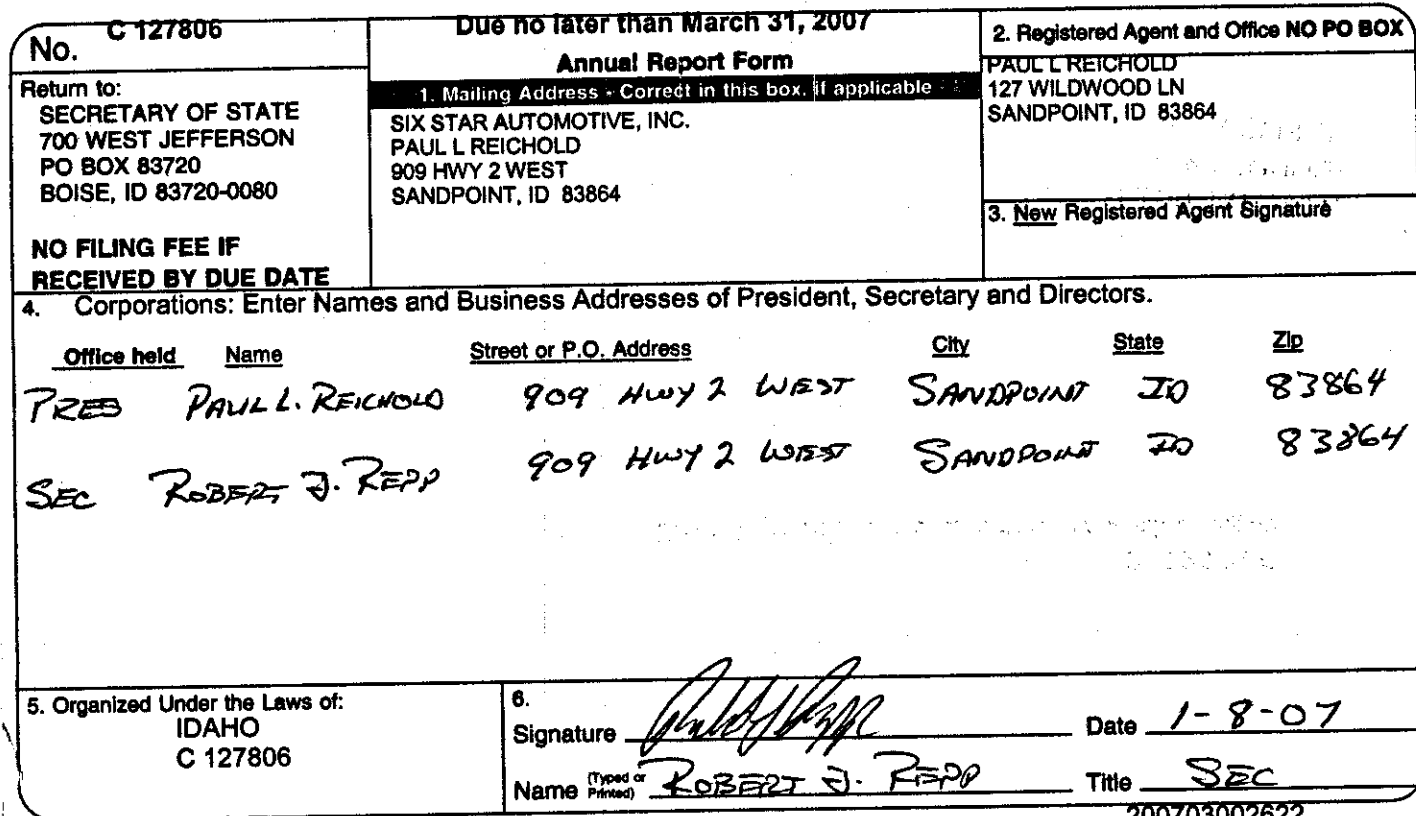 No. C 127806
Return to:
SECRETARY OF STATE
700 WEST JEFFERSON
PO BOX 83720
BOISE, ID 83720-0080
NO FILING FEE IF
RECEIVED BY DUE DATE
Due no later than March 31, 2007
Annual Report Form
1. Mailing Address - Correct in this box, if applicable
SIX STAR AUTOMOTIVE, INC.
PAUL L REICHOLD
909 HWY 2 WEST
SANDPOINT, ID 83864
2. Registered Agent and Office NO PO BOX
PAUL L REICHOLD
127 WILDWOOD LN
SANDPOINT, ID 83864
3. New Registered Agent Signature
4. Corporations: Enter Names and Business Addresses of President, Secretary and Directors.
Office held Name Street or P.O. Address City State Zip
PRES PAUL L. REICHOLD 909 HWY 2 WEST SANDPOINT ID 83864
SEC ROBERT J. REPP 909 HWY 2 WEST SANDPOINT ID 83864
5. Organized Under the Laws of:
IDAHO
C 127806
6.
Signature Date 1-8-07
Name (Typed or Printed) ROBERT J. REPP Title SEC
200703002622